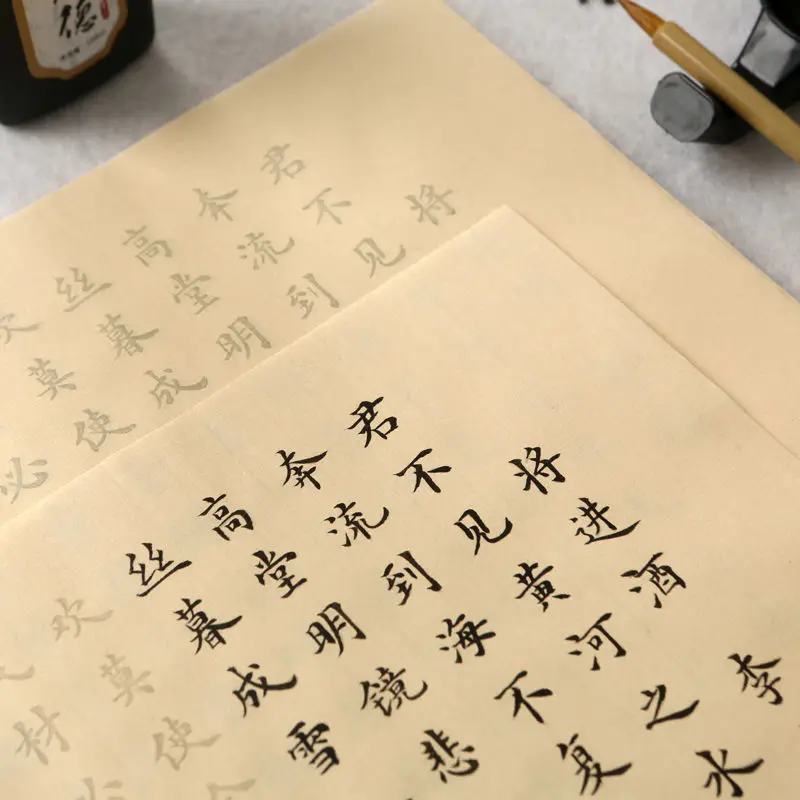 将进酒 李
君不见黄河之水
奔流到海不复
高堂明镜悲
丝暮成雪
欢莫使
材
将
君不见
奔流到
高堂明
丝暮成
欢莫使
必
德